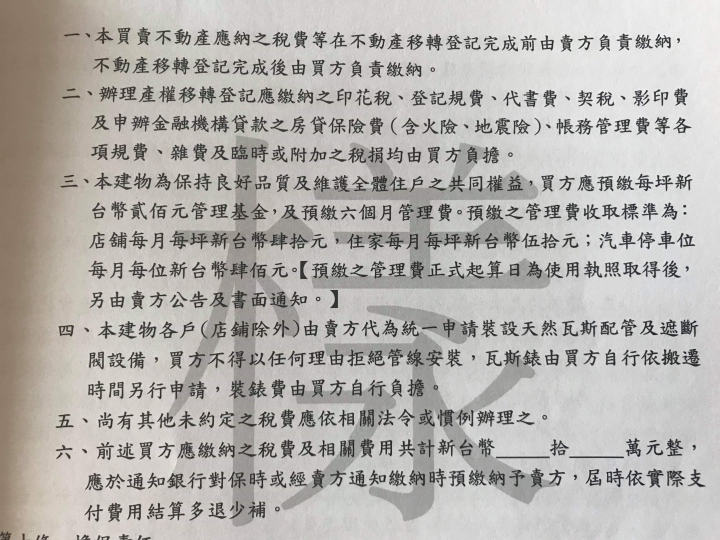 一、本買賣不動產應納之稅費等在不動產移轉登記完成前由賣方負責繳納，
不動產移轉登記完成後由買方負責繳納。
二、辦理產權移轉登記應繳納之印花稅、登記規費、代書費、契稅、影印費
及申辦金融機構貸款之房貸保險費（含火險、地震險）、帳務管理費等各
項規費、雜費及臨時或附加之稅捐均由買方負擔。
三、本建物為保持良好品質及維護全體住戶之共同權益，買方應預繳每坪新
台幣貳佰元管理基金，及預繳六個月管理費。預繳之管理費收取標準為：
店舖每月每坪新台幣肆拾元，住家每月每坪新台幣伍拾元；汽車停車位
每月每位新台幣肆佰元。【預繳之管理費正式起算日為使用執照取得後，
另由賣方公告及書面通知。】
四、本建物各戶（店鋪除外）由賣方代為統一申請裝設天然瓦斯配管及遮斷
閥設備，買方不得以任何理由拒絕管線安裝，瓦斯錶由買方自行依搬遷
時間另行申請，裝錶費由買方自行負擔。
五、尚有其他未約定之稅費應依相關法令或慣例辦理之。
六、前述買方應繳納之稅費及相關費用共計新台幣_____拾_____萬元整，
應於通知銀行對保時或經賣方通知繳納時預繳納予賣方，屆時依實際支
付費用結算多退少補。
樣